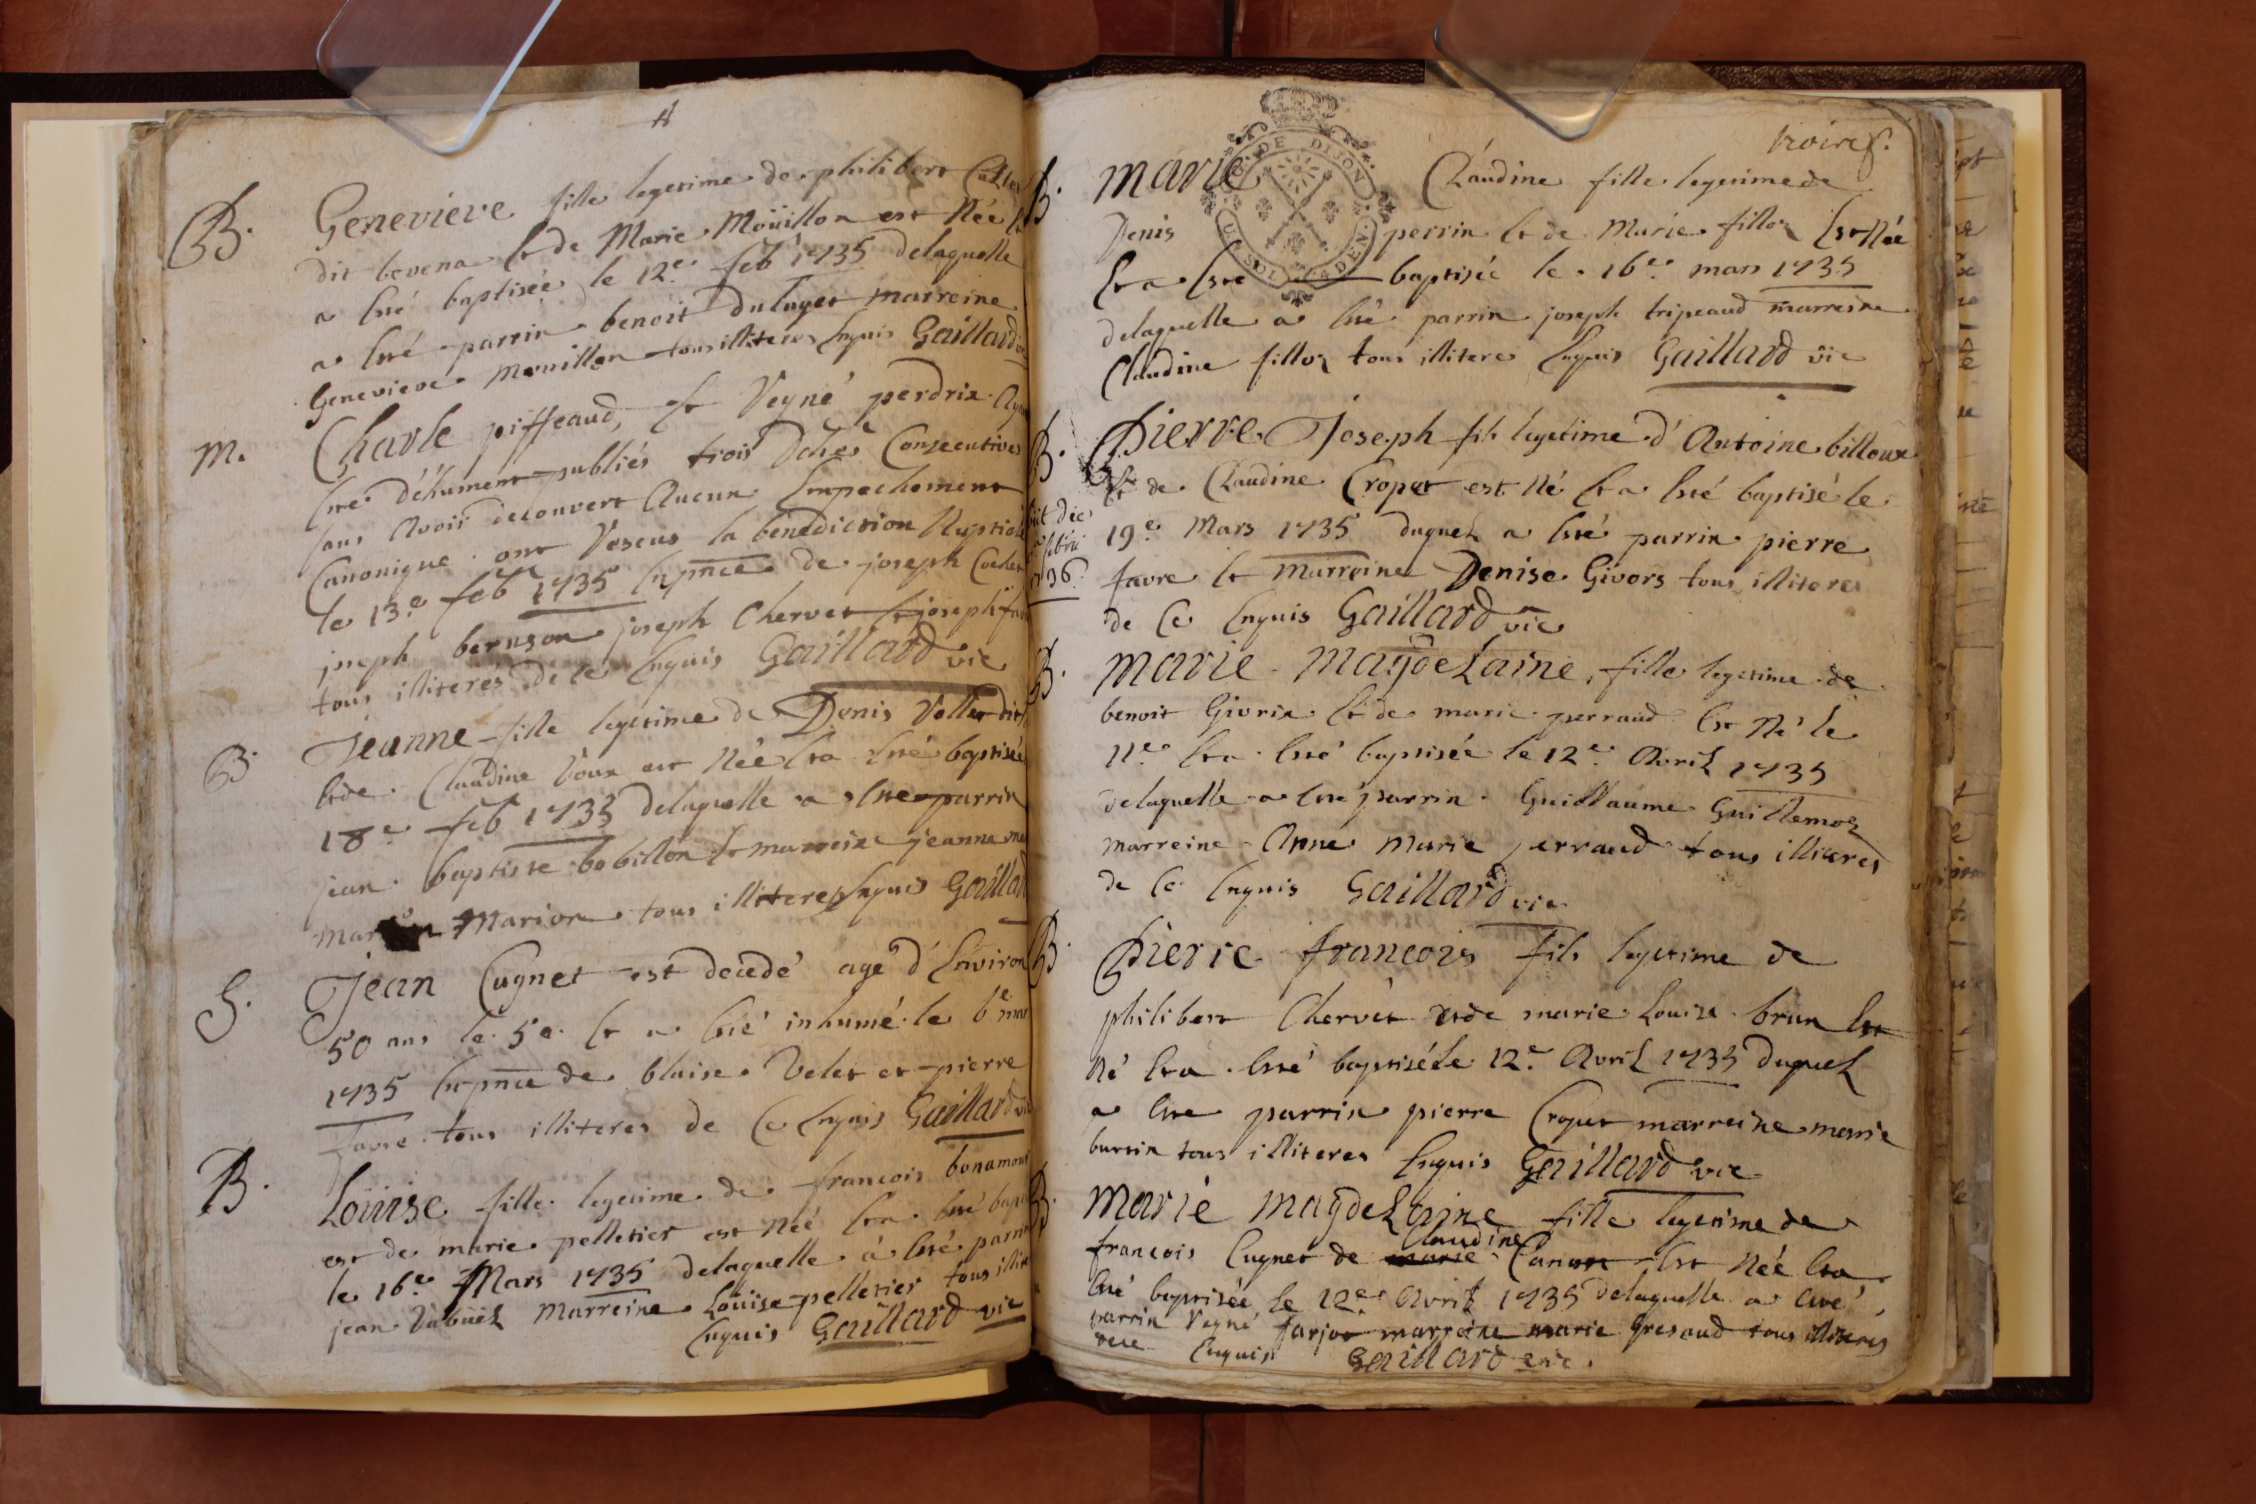 B. Genevieve fille legetime de philibert
dit bevena et de Marie Moüillon est Née
a esté baptisée le 12.e feb 1735 delaquelle
a esté parrin benoit duluger marreine
Genevieve Mouillon tous illiteres enquis Gaillard
M. Charle piffeaud, et Veyné perdrix
esté dehument publiés trois Dches Consecutives
sans avoir decouvert aucun Empechement
Canonique ont reseus la benediction Nuptiale
le 13.e feb 1735 En pnce de joseph
joseph bernson joseph Chervet et joseph
tous illiteres de ce Enquis Gaillard vic
B. Jeanne fille legetime de Denis Vollet dit
et de Claudine Voux est Née et a esté baptisée
18.e feb 1735 delaquelle a esté parrin
jean baptiste bobillon et marreine jeanne
Marion tous illiteres Enquis Gaillard
S. Jean Cugnet est decedé agé d'Environ
50 ans le 5e et a esté inhumé le 6e mars
1735 En pnce de blaise Velet et pierre
favre tous illiteres de Ce Enquis Gaillard vic
B. Loüise fille legetime de francois bonamour
est de marie pelletier est Née et a esté
le 16.e Mars 1735 delaquelle à esté parrin
jean marreine Loüise pelletier tous
Enquis Gaillard vic
B. Marie Claudine fille legetime de
G. DE DIJON
Denis perrin et de Marie fillon Est Née
Et a Esté baptisée le 16.e mars 1735
delaquelle a esté parrin joseph tripeaud marreine
Claudine fillon tous illitere Enquis Gaillard vic
B. Pierre Joseph fils legetime d'Antoine billoux
et de Claudine Cropet est Né et a esté baptisé le
19.e Mars 1735 duquel a esté parrin pierre
favre et Marreine Denise Givors tous illiteres
de Ce Enquis Gaillard vic
B. Marie Magdelaine, fille legetime de
benoit Givrix et de marie perraud Est Né le
11.e et a esté baptisée le 12.e Avril 1735
delaquelle a esté parrin Guillaume Guillemot
marreine Anne Marie perraud tous illiteres
de Ce Enquis Gaillard vic
B. Pierre francois fils legetime de
philibert Chervet et de marie Louise brun Est
Né et a esté baptisé le 12.e Avril 1735 duquel
a esté parrin pierre Croput marreine marie
bursin tous illiteres Enquis Gaillard vic
B. Marie Magdelaine fille legetime de
Claudine
francois Cugnet de marie Canon Est Née et a
esté baptisée le 12.e Avril 1735 delaquelle a esté
parrin Veyné farjot marreine marie Gresaud tous illiteres
Enquis Gaillard vic.